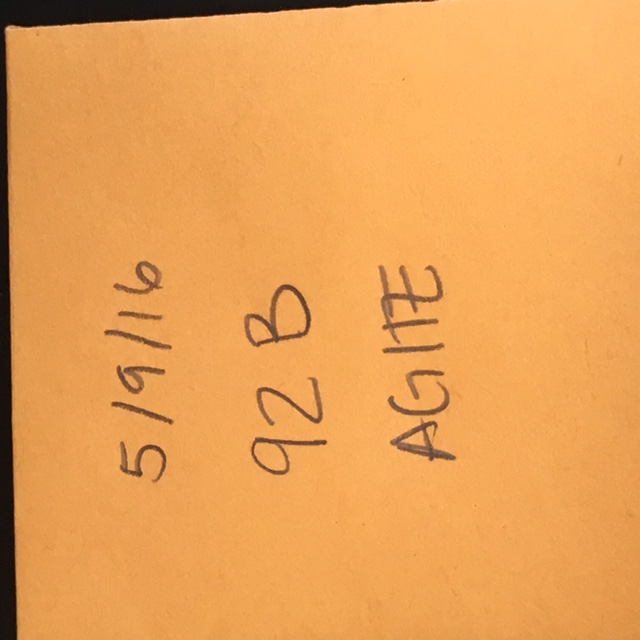 5/9/16
92 B
AGITE